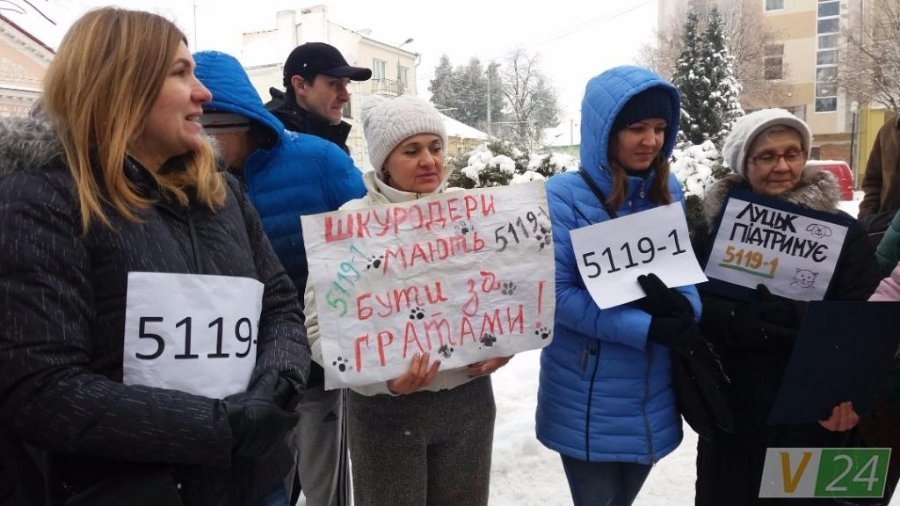 5119-
ШКУРОДЕРИ
МАЮТЬ
5119-1
5119-1
БУТИ ЗА
ГРАТАМИ!
5119-1
ЛУЦЬК
ПІДТРИМУЄ
5119-1
V24